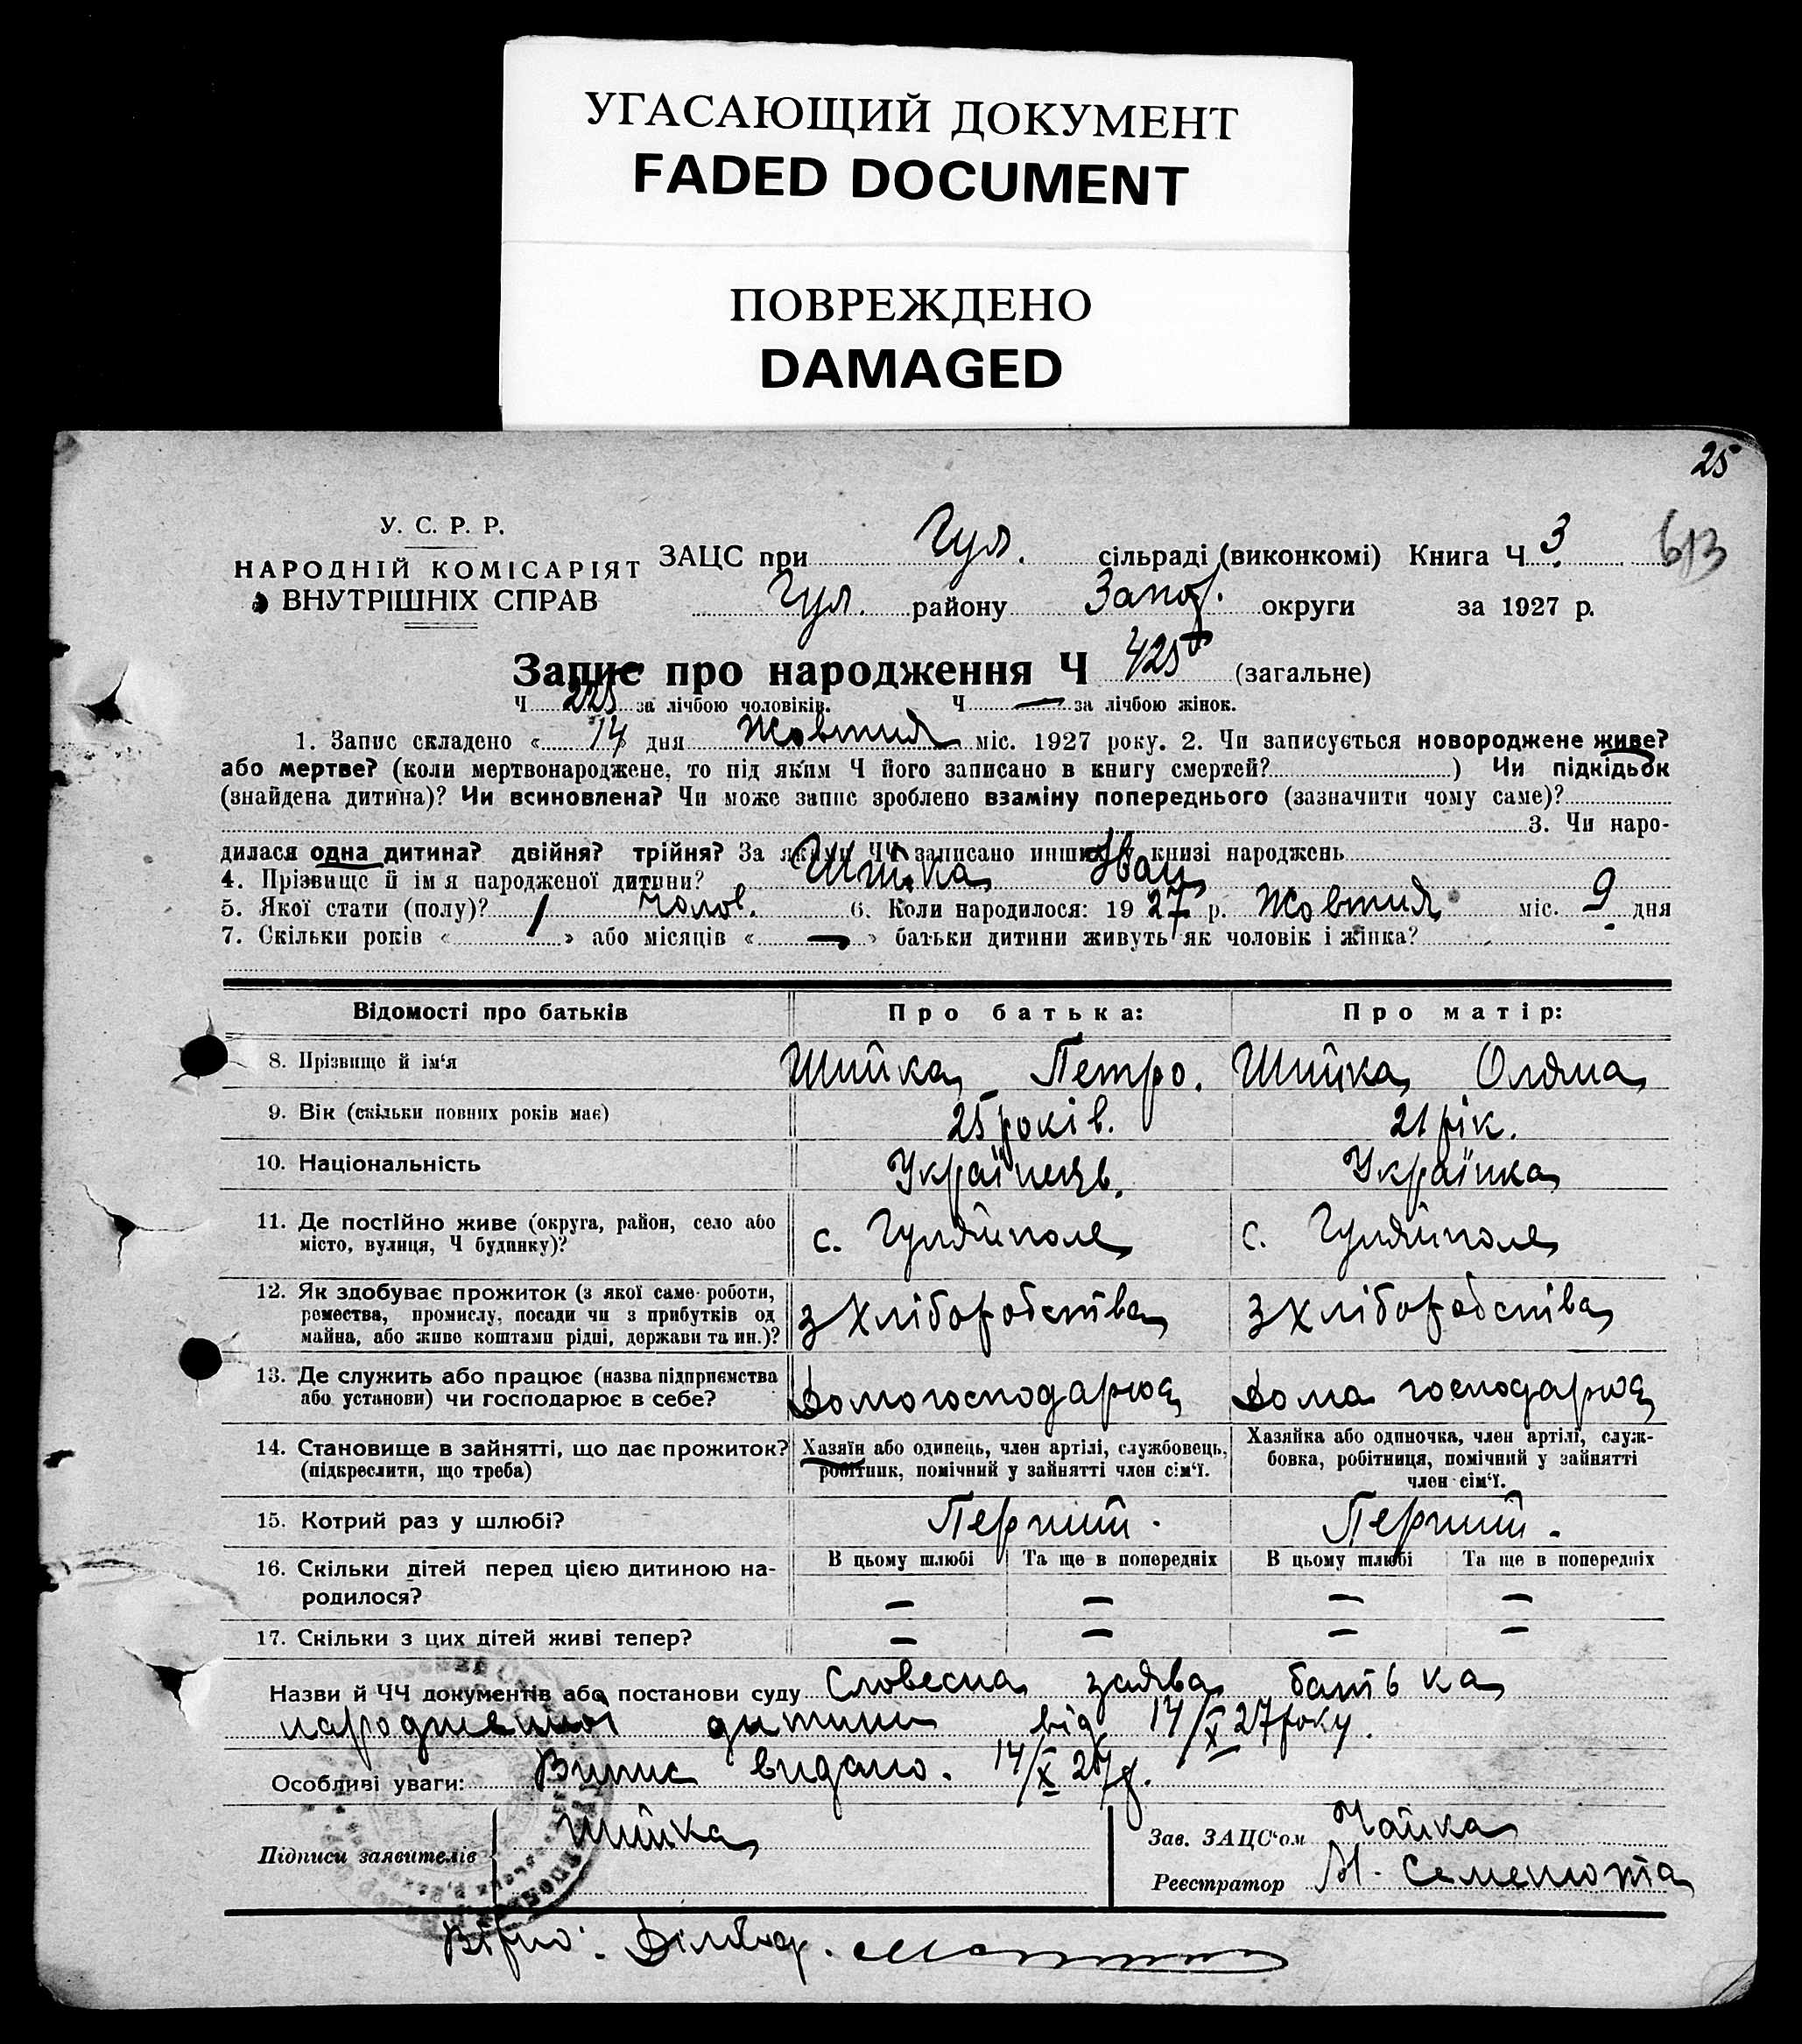 УГАСАЮЩИЙ ДОКУМЕНТ
FADED DOCUMENT
ПОВРЕЖДЕНО
DAMAGED
25
У. С. Р. Р.
НАРОДНІЙ КОМІСАРІЯТ
ВНУТРІШНІХ СПРАВ
ЗАЦС при Гул. сільраді (виконкомі) Книга Ч 3
613
Гул. району Запор. округи за 1927 р.
Запис про народження Ч 425 (загальне)
Ч 225 за лічбою чоловіків. Ч — за лічбою жінок.
1. Запис складено « 14 » дня Жовтня міс. 1927 року. 2. Чи записується новороджене живе?
або мертве? (коли мертвонароджене, то під яким Ч його записано в книгу смертей? ) Чи підкідьок
(знайдена дитина)? Чи всиновлена? Чи може запис зроблено взаміну попереднього (зазначити чому саме)?
3. Чи наро-
дилася одна дитина? двійня? трійня? За якими ЧЧ записано инших у книзі народжень
4. Прізвище й імя народженої дитини? Шийка Іван
5. Якої стати (полу)? чолов. 6. Коли народилося: 1927 р. Жовтня міс. 9 дня
7. Скільки років « 1 » або місяців « — » батьки дитини живуть як чоловік і жінка?
Відомості про батьків Про батька: Про матір:
8. Прізвище й ім'я Шийка Петро. Шийка Оляна
9. Вік (скільки повних років має) 25 років. 21 рік.
10. Національність Українець. Українка
11. Де постійно живе (округа, район, село або с. Гуляйполе с. Гуляйполе
місто, вулиця, Ч будинку)?
12. Як здобуває прожиток (з якої саме роботи, з хліборобства з хліборобства
ремества, промислу, посади чи з прибутків од
майна, або живе коштами рідні, держави та ин.)?
13. Де служить або працює (назва підприємства Домогосподарює Дома господарює
або установи) чи господарює в себе?
14. Становище в зайнятті, що дає прожиток? Хазяїн або одинець, член артілі, службовець, Хазяйка або одиночка, член артілі, служ-
(підкреслити, що треба) робітник, помічний у зайнятті член сім'ї. бовка, робітниця, помічний у зайнятті
член сім'ї.
15. Котрий раз у шлюбі? Перший. Перший.
16. Скільки дітей перед цією дитиною на- В цьому шлюбі Та ще в попередніх В цьому шлюбі Та ще в попередніх
родилося? — — — —
17. Скільки з цих дітей живі тепер? — — — —
Назви й ЧЧ документів або постанови суду Словесна заява батька
народженної дитини від 14/X 27 року.
Особливі уваги: Випис видано. 14/X 27 р.
Підписи заявителів Шийка
Зав. ЗАЦС'ом Чайка
Реєстратор М. Семенюта
Вірно: Діловод.